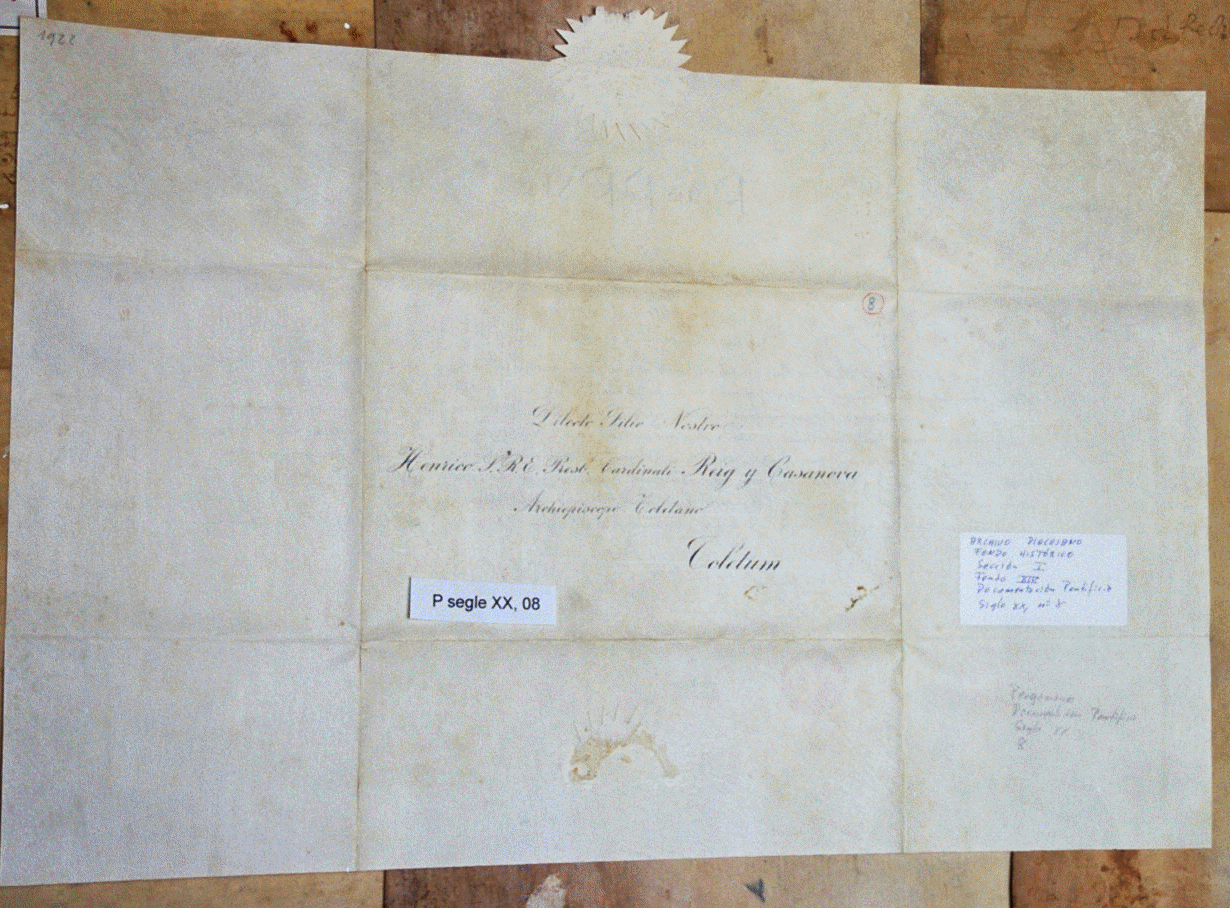 1922
8
Dilecto Filio Nostro
Henrico S.R.E. Presb. Cardinali Reig y Casanova
Archiepiscopo Toletano
Toletum
P segle XX, 08
ARCHIVO DIOCESANO
FONDO HISTÓRICO
Sección I
Fondo XIII
Documentación Pontificia
Siglo XX, nº 8
Pergamino
Documentación Pontificia
Siglo XX
8